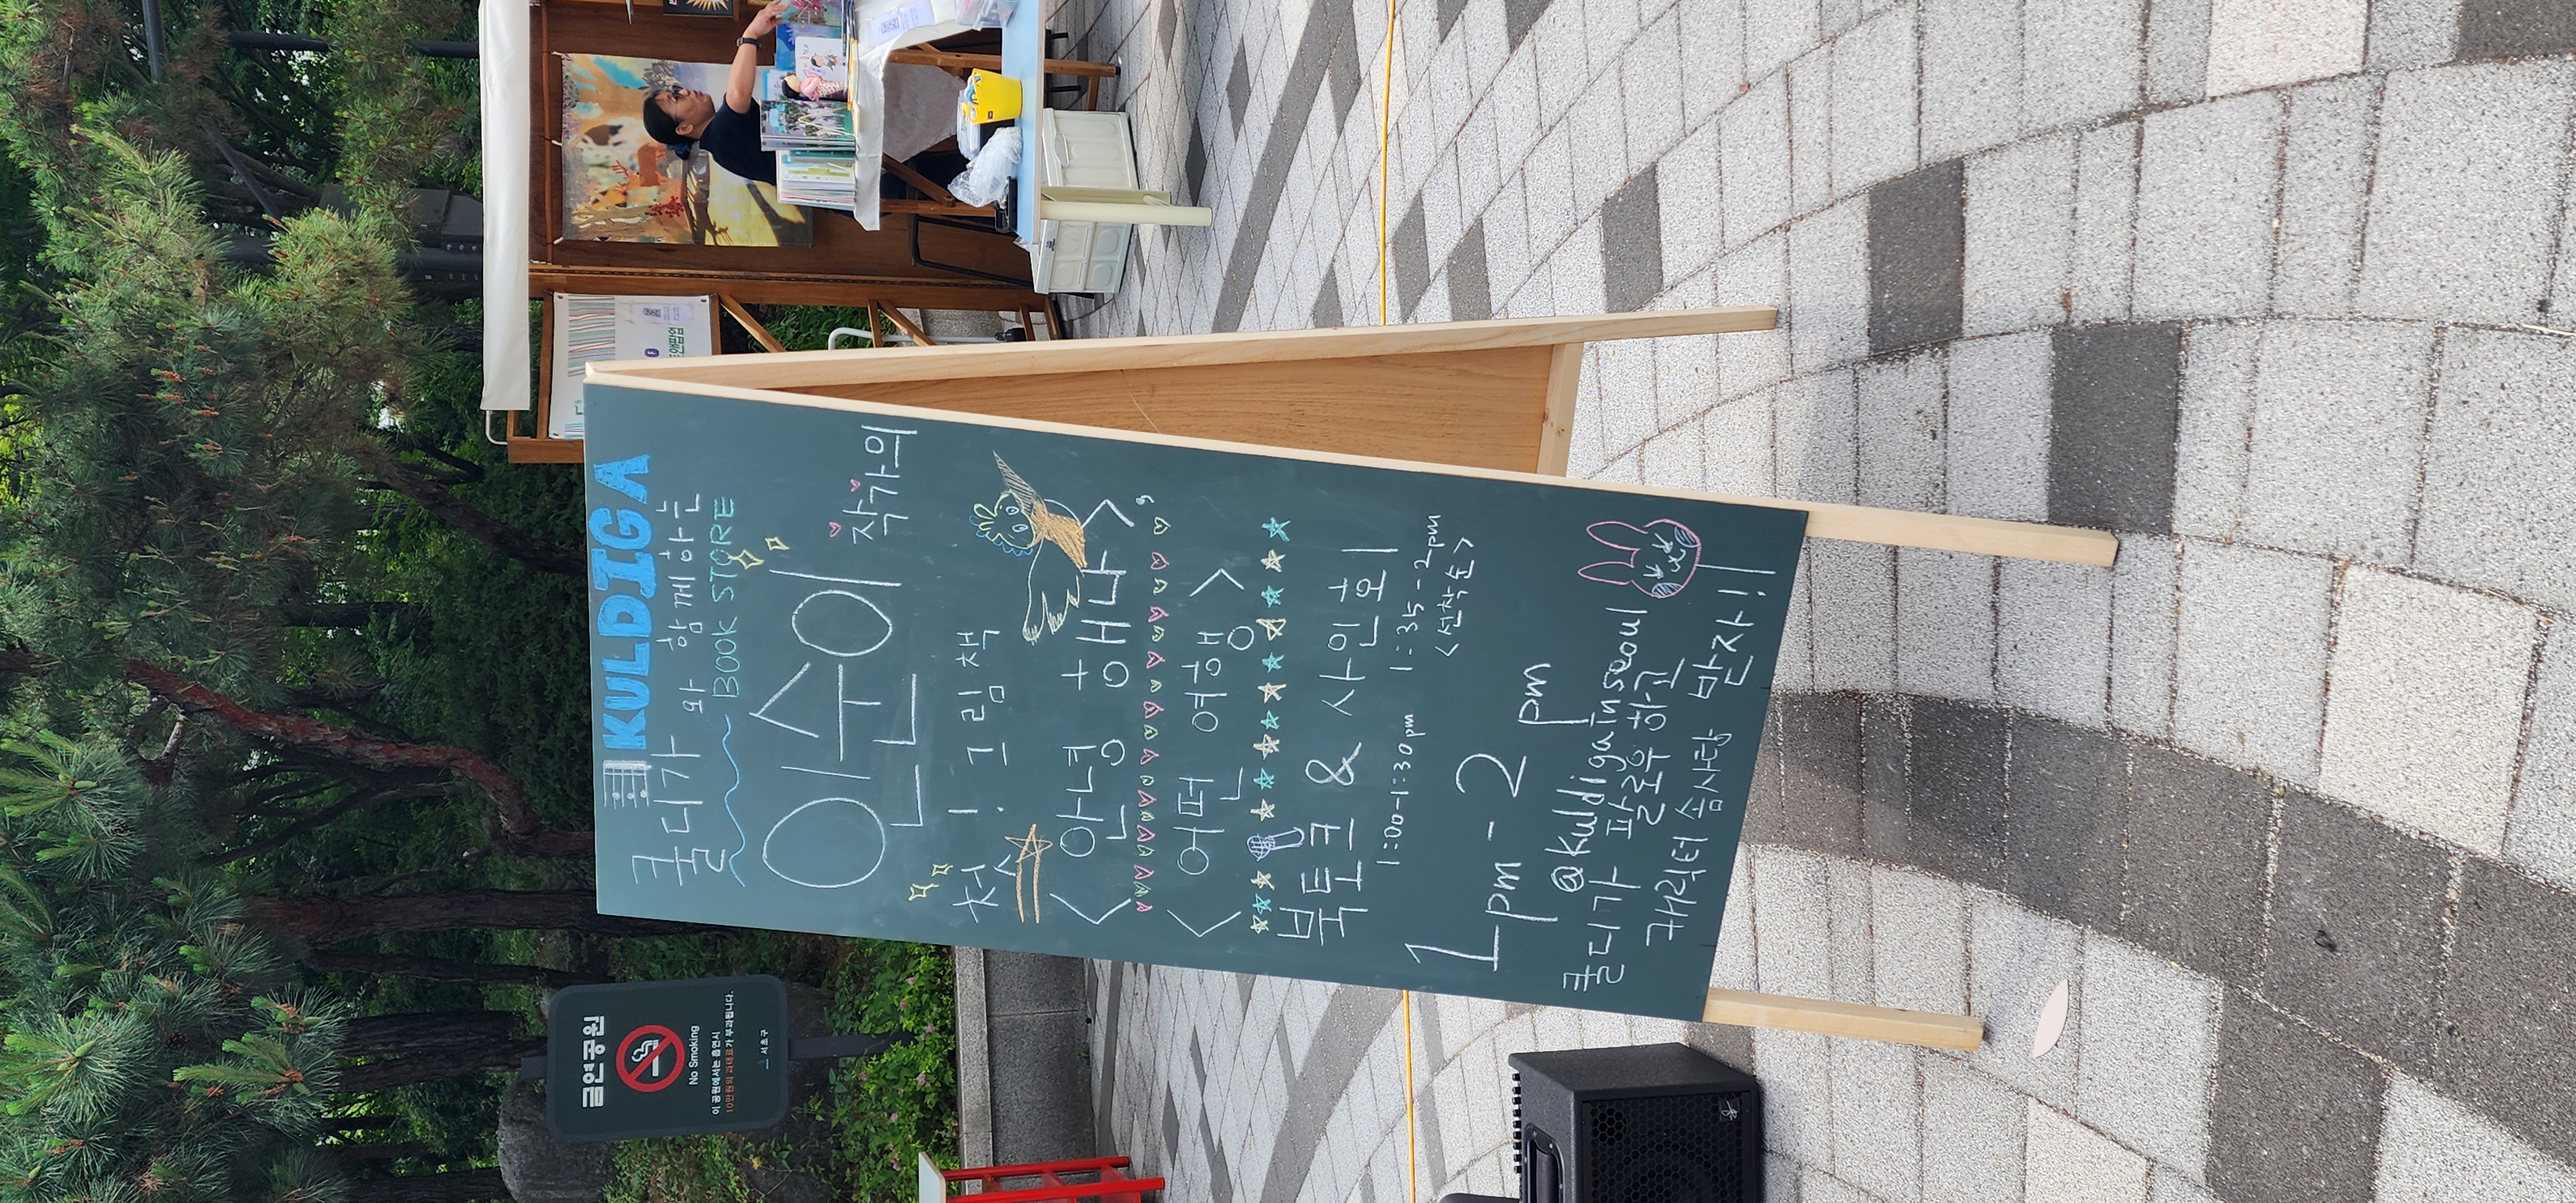 KULDIGA
쿨디가와 함께하는
BOOK STORE
인순이 작가의
첫 1. 그림책
<안녕 항해나>,
<어떤 여행>
북토크 & 사인회
1:00-1:30pm 1:35-2pm
<선착순>
1pm - 2pm
@kuldigainseoul
쿨디가 팔로우하고
캐릭터 솜사탕 받자!!
금연공원
No Smoking
이 공원에서는 흡연시
10만원의 과태료가 부과됩니다.
서초구